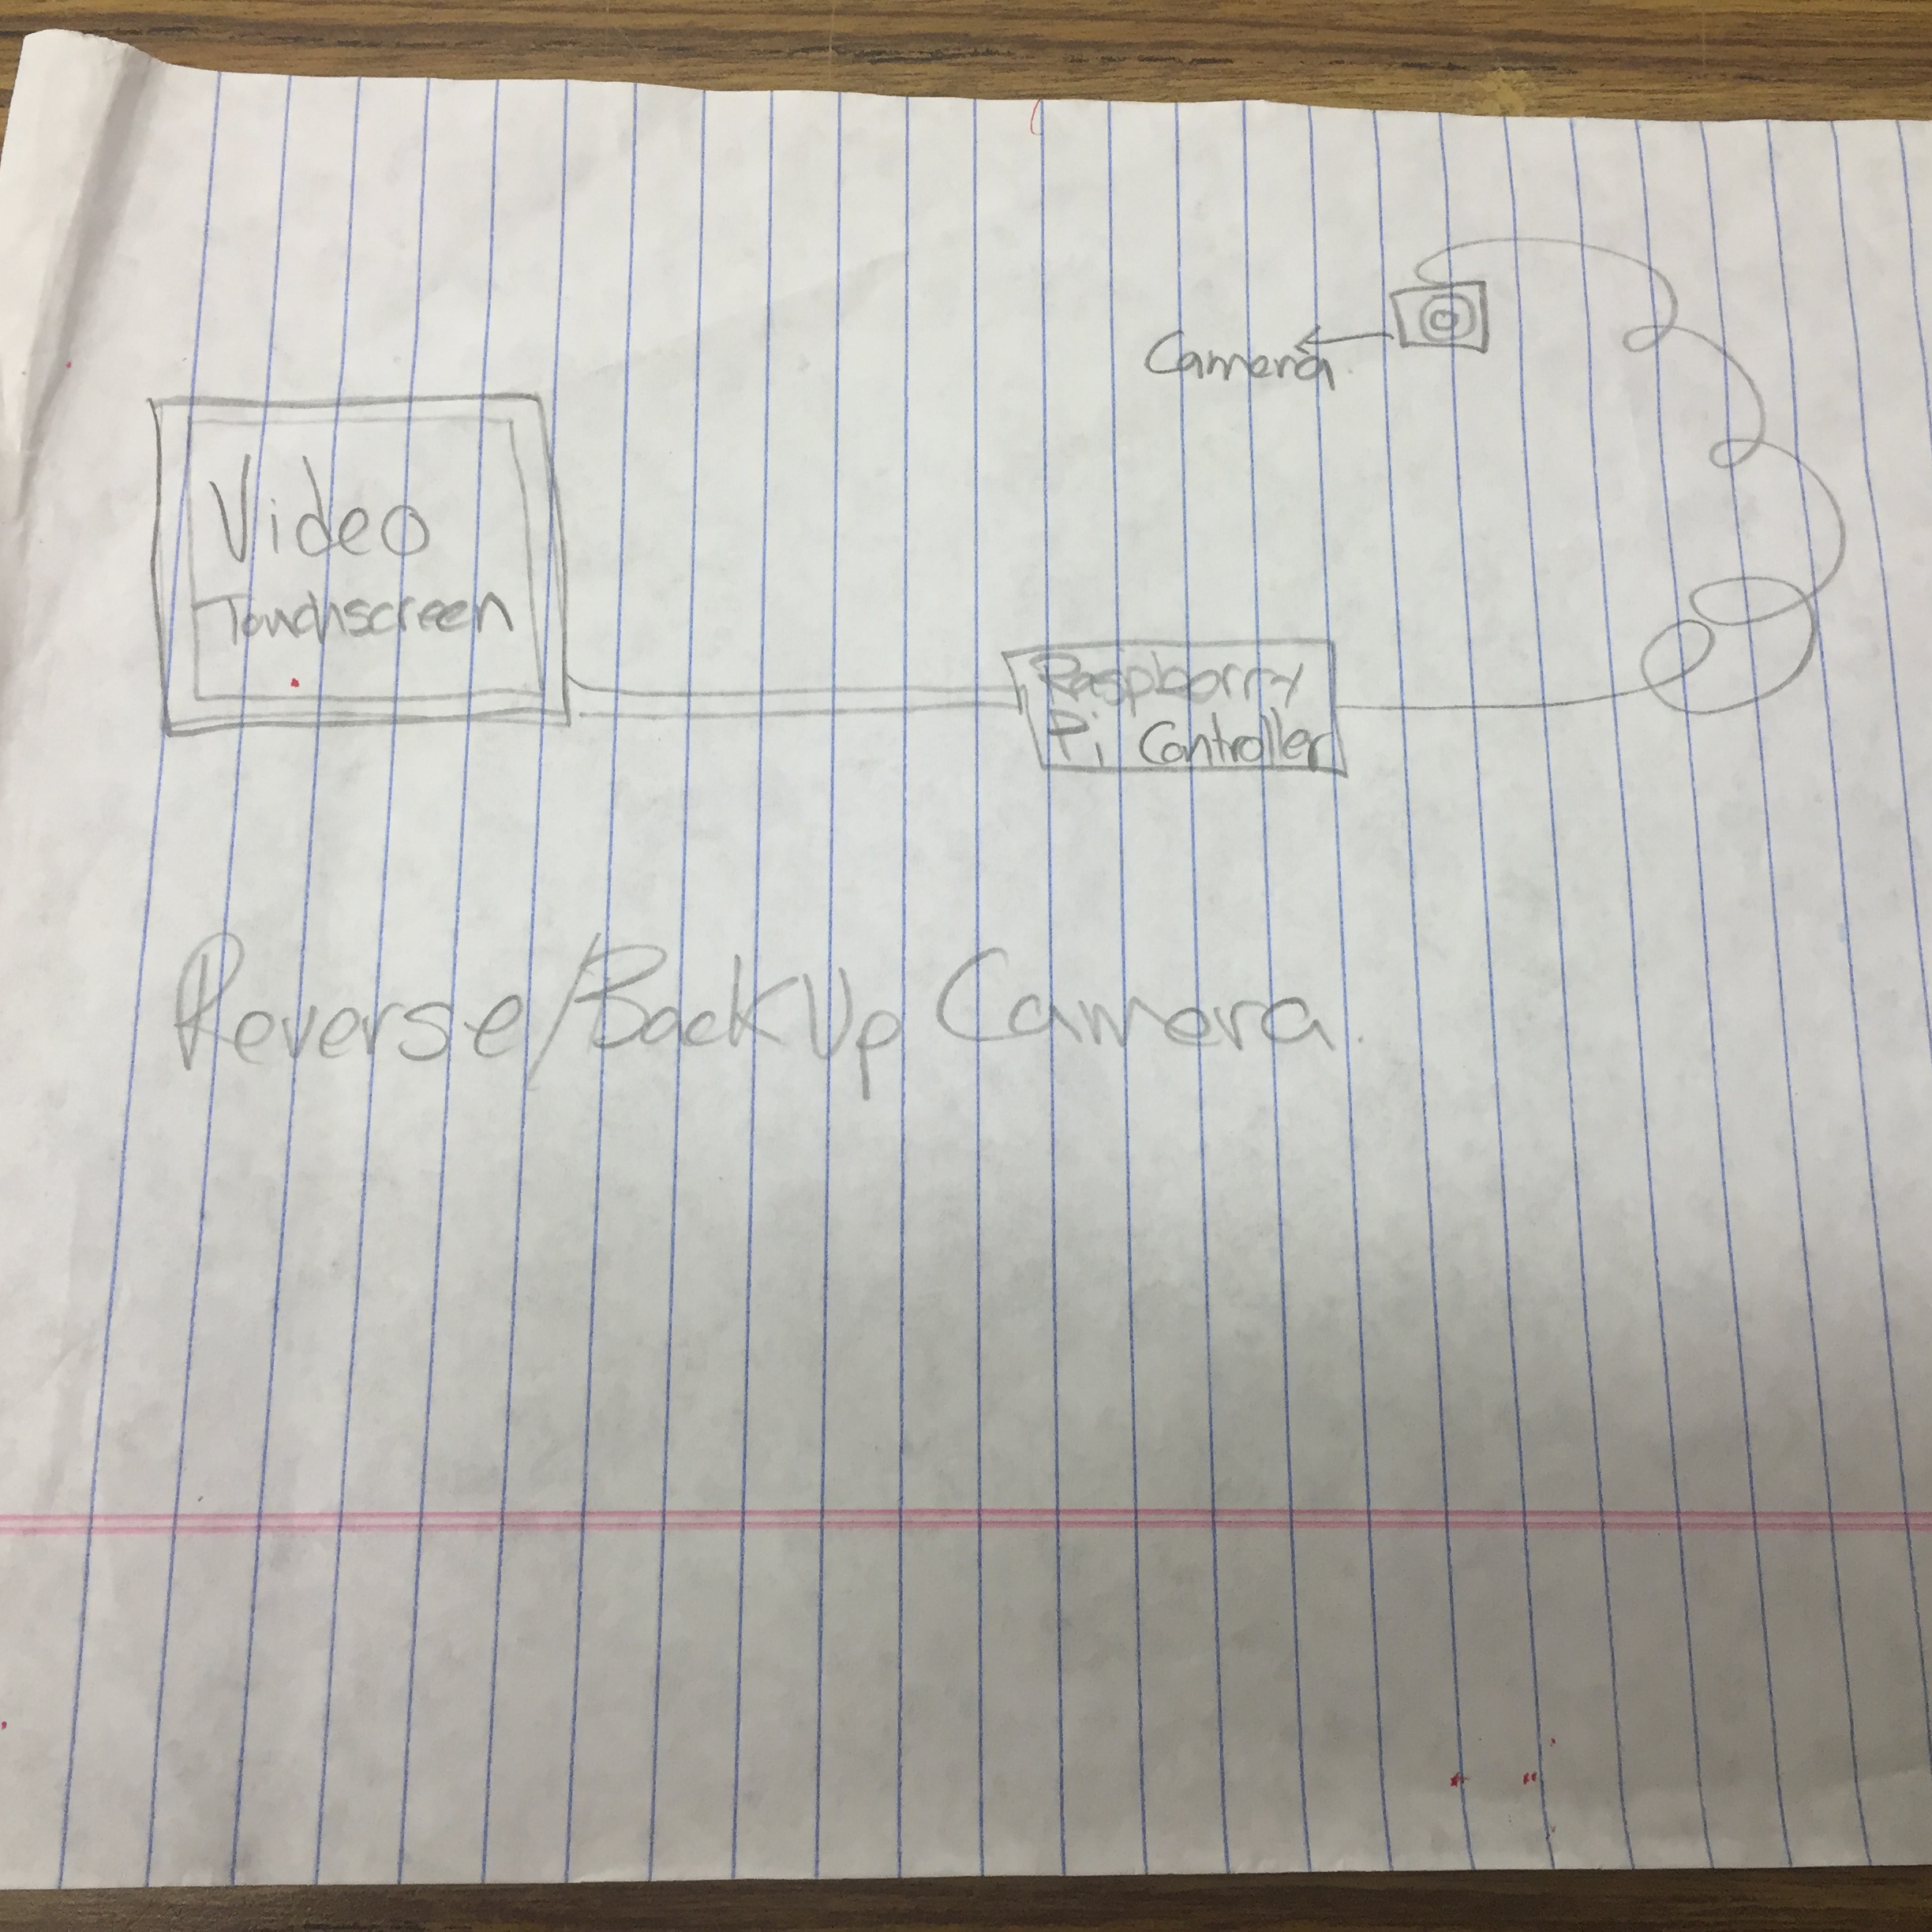 Video
Touchscreen
Raspborry
Pi Controller
Camera
Reverse/BackUp Camera